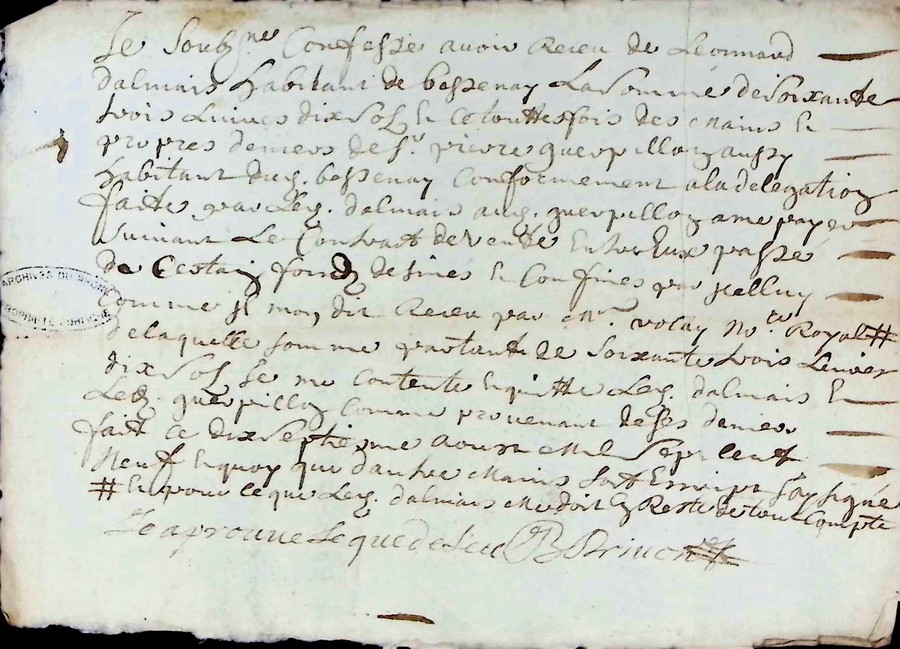 Je soubz.né Confesse avoir Receu de Léonnard
dalmais habitant de bessenay La somme de soixante
trois Livres dix solz et ce touttesfois des mains et
propres deniers de Sr. pierre guerpillon aussy
habitant dud. bessenay Conformement a la delegation
faite par Led. dalmais aud. guerpillon a me payer
suivant Le Contract de vente Entre Eux passé
de Certain fondz desinés et Confines par Icelluy
Comme Il mon dit Receu par Me. volay No.re Royal #
de laquelle somme partant de soixante trois Livres
dix solz Je me Contente Et quitte Led. dalmais et
Led. guerpillon comme provenant de ses deniers
fait ce dix septiesme aoust Mil sept cent
Neuf Et quoy que dautre Mains soit Escript J'ay signé
# Et pour ce que Led. dalmais Me doit En Reste de tout Compte
Jeaprouve Leque deseu
ARCHIVES DU